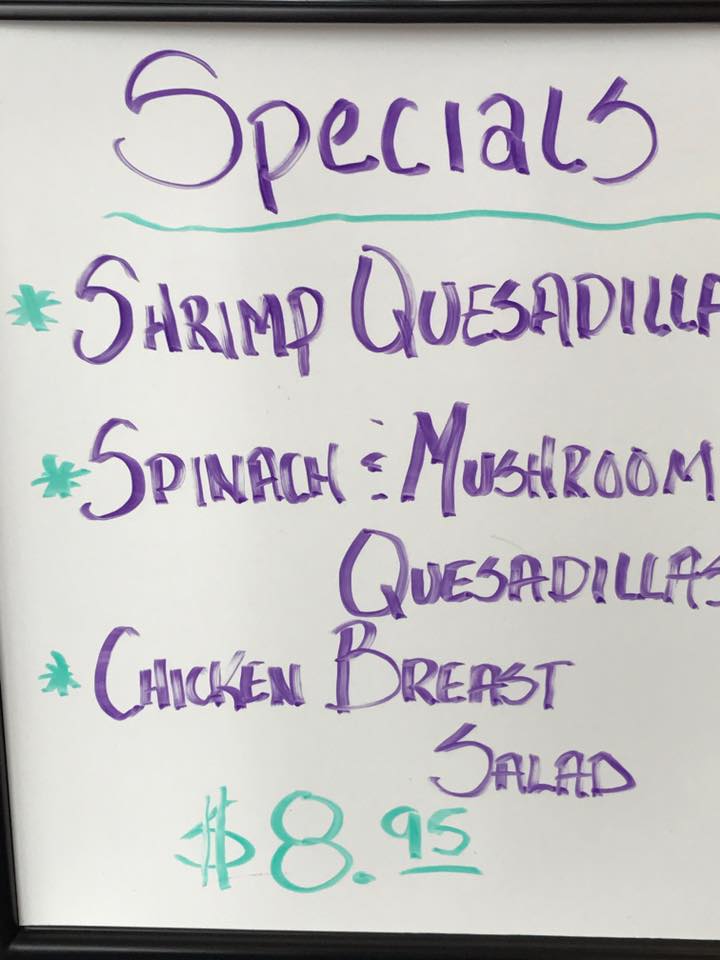 Specials
* SHRIMP QUESADILLA
* SPINACH & MUSHROOM
QUESADILLAS
* CHICKEN BREAST
SALAD
$8.95